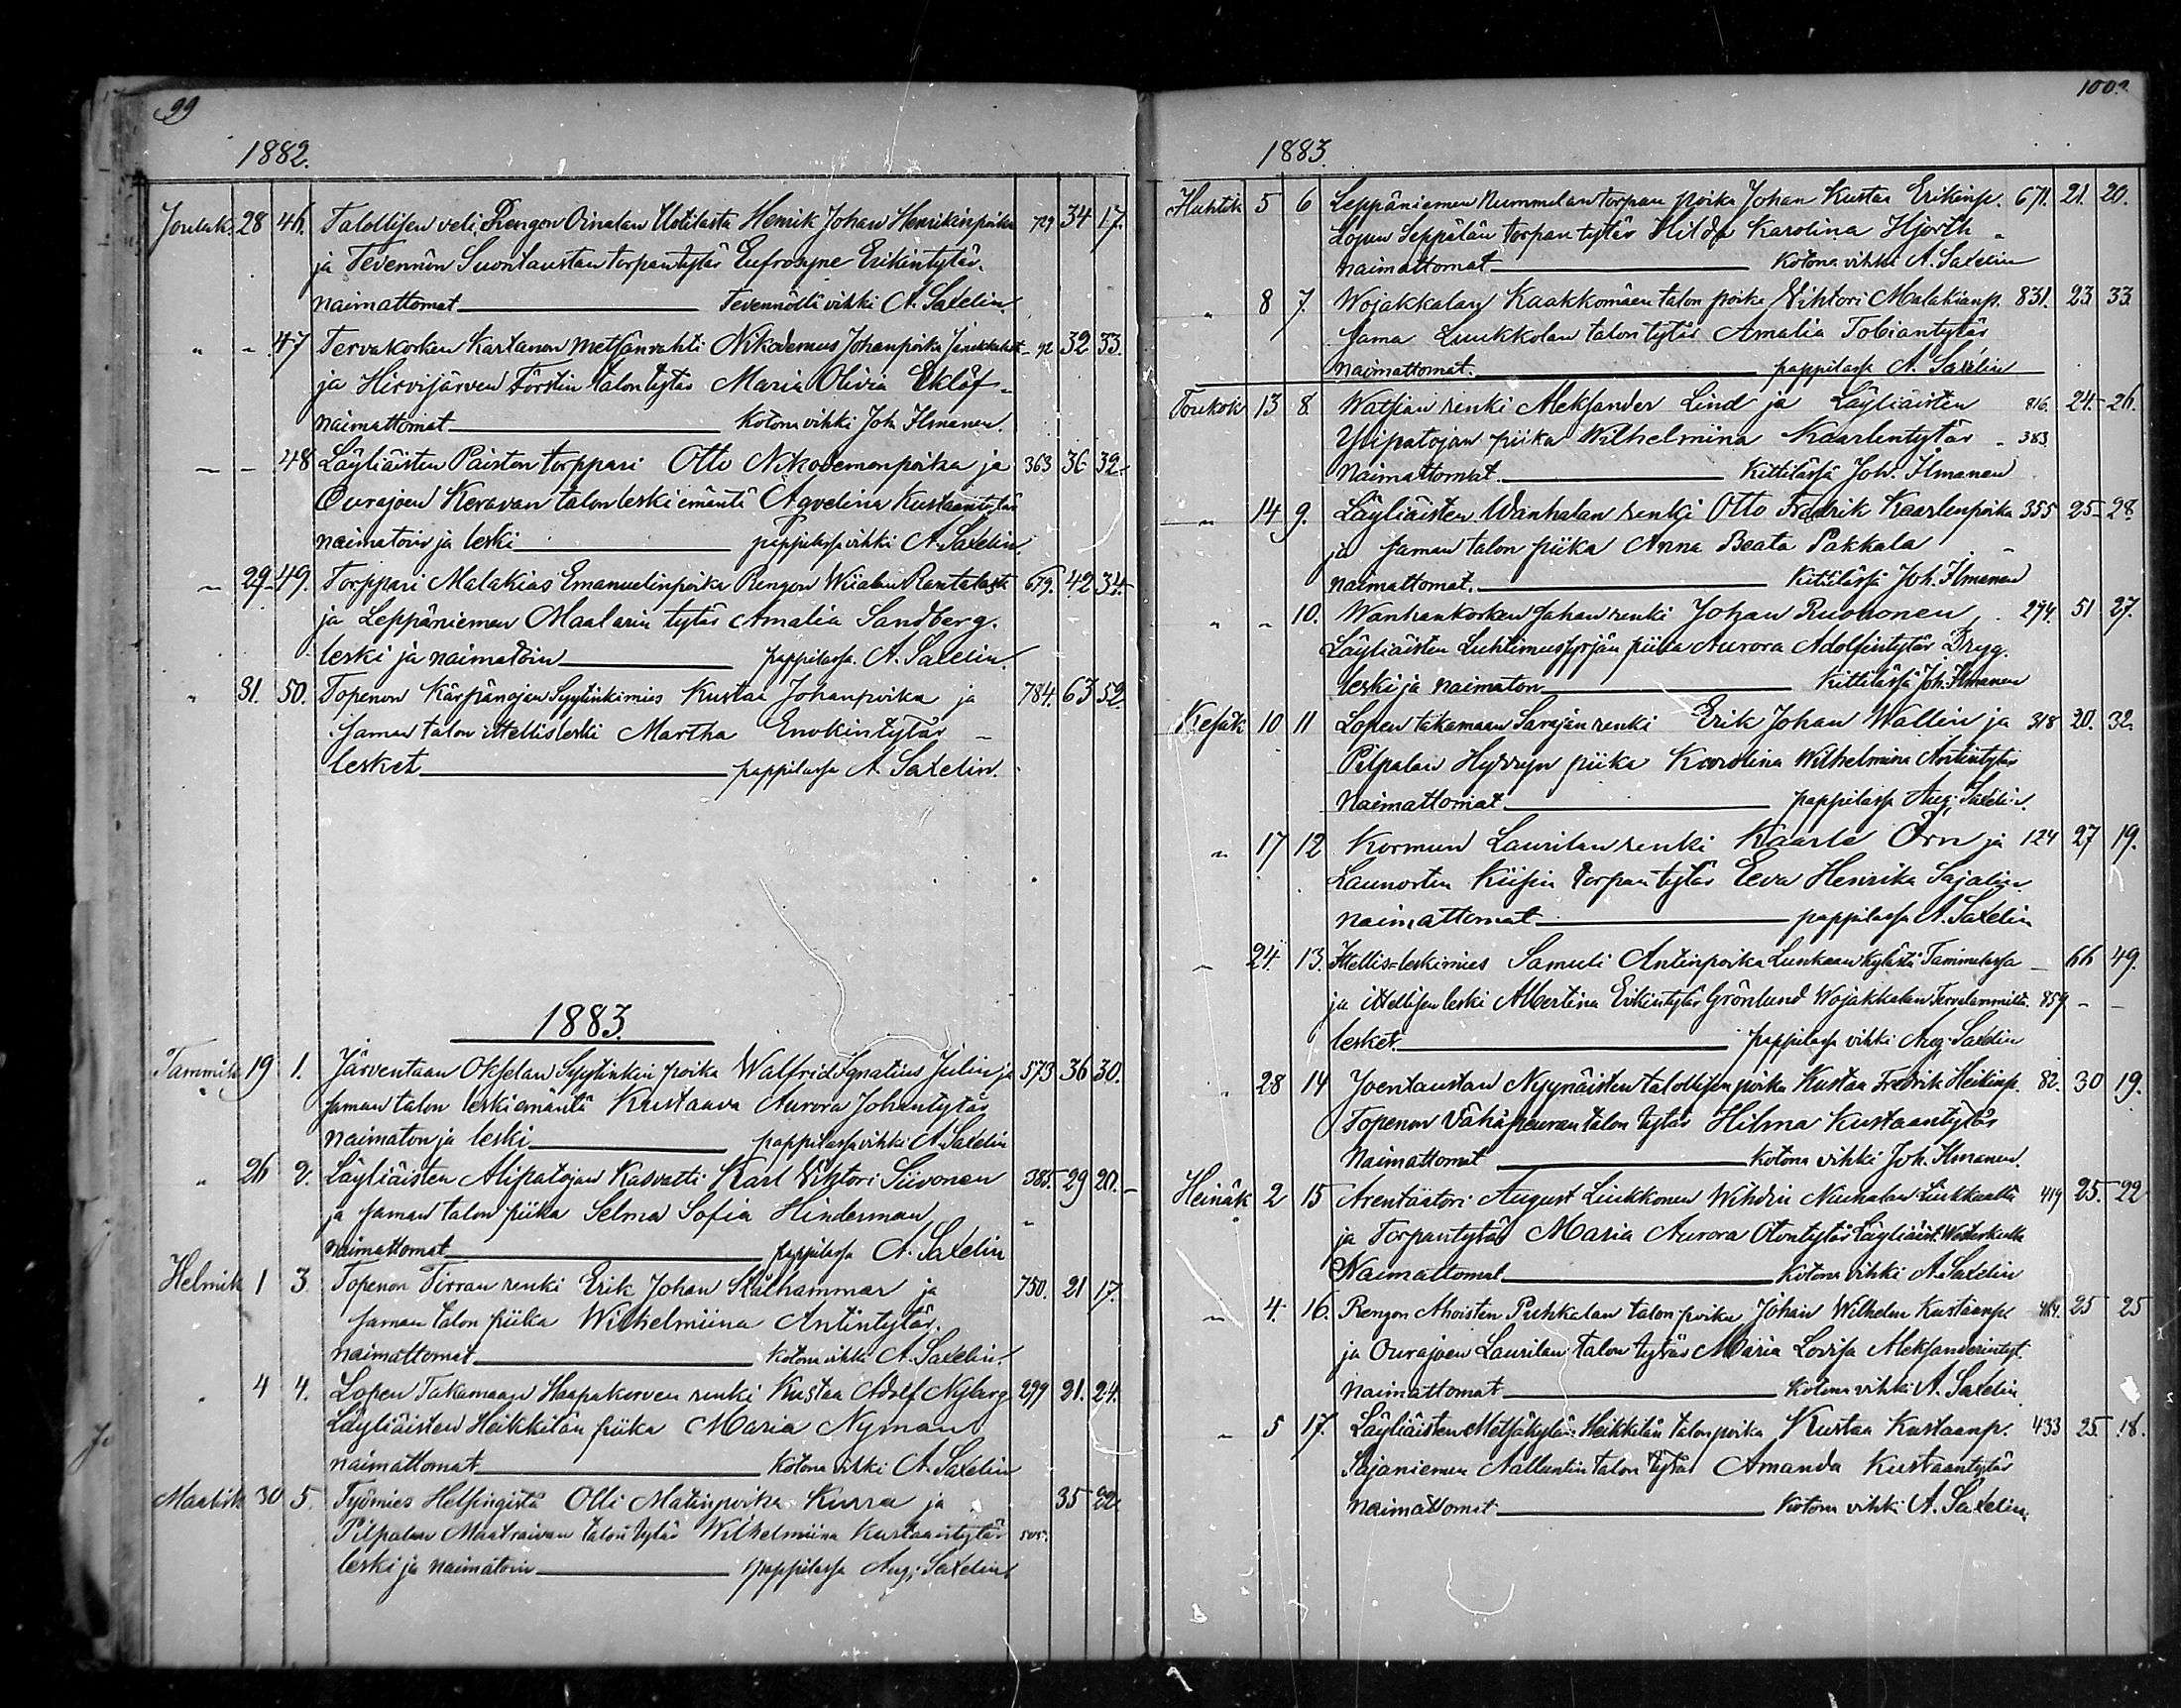 99
1882.
Jouluk. 28 46. Talollisen veli, Rengon Oinalan Uotilasta Henrik Johan Henrikinpoika 729 34 17.
ja Tevennön Suontaustan torpan tytär Eufrosyne Erikintytär.
naimattomat Tevennöllä vihki A. Saxelin.
" - 47 Tervakosken Kartanon metsänvahti Nikodemus Johanpoika 92 32 33.
ja Hirvijärven Förstin talon tytär Maria Olivia Eklöf -
naimattomat Kotona vihki Joh. Ilmanen.
- - 48 Läyliäisten Paiston torppari Otto Nikodemonpoika ja 363 36 32.
Ourajoen Keravan talon leski emäntä Agvelina Kustaantytär
naimatoin ja leski pappilassa vihki A. Saxelin
- 29 49. Torppari Malakias Emanuelinpoika Rengon Wiialan Rantalasta 679. 42 34.
ja Leppäniemen Maalarin tytär Amalia Sandberg.
leski ja naimatoin pappilassa. A. Saxelin.
" 31. 50. Topenon Kärpänojan Syytinkimies Kustaa Johanpoika ja 784. 63 52.
saman talon ittellisleski Martha Enokintytär -
lesket pappilassa A. Saxelin.
1883.
Tammik 19 1. Järventaan Okselan Syytinkin poika Walfrid Ignatius Julin ja 573 36 30.
saman talon leskiemäntä Kustaava Aurora Johantytär
naimaton ja leski pappilassa vihki A. Saxelin
" 26 2. Läyliäisten Alipatojan Kasvatti Karl Viktori Siivonen 385. 29 20.
ja saman talon piika Selma Sofia Hinderman "
naimattomat pappilassa A. Saxelin
Helmik 1 3. Topenon Tirran renki Erik Johan Stålhammar ja 750. 21 17.
saman talon piika Wilhelmiina Antintytär.
naimattomat Kotona vihki A. Saxelin.
. 4 4. Lopen Takamaan Haapakorven renki Kustaa Adolf Nyberg 299 21. 24.
Läyliäisten Heikkilän piika Maria Nyman
naimattomat Kotona vihki A. Saxelin
Maalisk 30 5. Työmies Helsingistä Olli Matinpoika Kurra ja 35 22.
Pilpalan Maatraivan talon tytär Wilhelmiina Kustaantytär 505.
leski ja naimatoin pappilassa Aug. Saxelin.
100.
1883.
Huhtik 5 6 Leppäniemen Nummelan torpan poika Johan Kustaa Erikinp. 671. 21. 20.
Lopen Seppälän torpan tytär Hilda Karolina Hjorth "
naimattomat Kotona vihki A. Saxelin
" 8 7. Wojakkalan Kaakkomäen talon poika Viktori Malakianp. 831. 23 33
sama Luukkolan talon tytär Amalia Tobiantytär
naimattomat. pappilassa A. Saxelin
Toukok 13 8. Watsian renki Aleksander Lind ja Läyliäisten 816. 24. 26.
Ylipatojan piika Wilhelmina Kaarlentytär - 383
Naimattomat. Kittilässä Joh. Ilmanen
" 14 9. Läyliäisten Wanhalan renki Otto Fredrik Kaarlenpoika 355 25 28.
ja saman talon piika Anna Beata Pakkala "
naimattomat. Kittilässä Joh. Ilmanen
" " 10. Wanhankosken Sahan renki Johan Ruohonen 294. 51 27.
Läyliäisten Luhtimussyrjän piika Aurora Adolfintytär Bryg.
leski ja naimaton Kittilässä Joh. Ilmanen
Kesäk 10 11 Lopen takamaan Sarajan renki Erik Johan Wallin ja 318 20. 32.
Pilpalan Hyrryn piika Karolina Wilhelmina Antintytär
Naimattomat pappilassa Aug. Saxelin.
" 17 12 Kormun Laurilan renki Kaarle Örn ja 124 27 19.
Launosten Kiisin torpan tytär Eeva Henrika Sajalin.
naimattomat pappilassa A. Saxelin
" 24. 13. Ittellis=leskimies Samuli Antinpoika Lunkaan kylästä Tammelassa - 66 49.
ja ittellisen leski Albertina Erikintytär Grönlund Wojakkalan Tervalammilta. 859 - -
lesket. pappilassa vihki Aug. Saxelin
" 28 14 Joentaustan Nyynäisten talollisen poika Kustaa Fredrik Heikinp. 82. 30 19.
Topenon Vähäpeuran talon tytär Hilma Kustaantytär
Naimattomat Kotona vihki Joh. Ilmanen.
Heinäk 2 15 Arentäätori August Liukkonen Wihdin Nuuhalan Liukkualta 419 25. 22
ja Torpantytär Maria Aurora Otontytär Läyliäist.
Naimattomat Kotona vihki A. Saxelin
" 4. 16. Rengon Ahoisten Puhkalan talon poika Johan Wilhelm Kustaanp. 464. 25 25
ja Ourajoen Laurilan talon tytär Maria Lovisa Aleksanderintyt.
naimattomat Kotona vihki A. Saxelin
" 5 17. Läyliäisten Metsäkylän Heikkilän talonpoika Kustaa Kustaanp. 433 25. 18.
Sajaniemen Nallantin talon tytär Amanda Kustaantytär
naimattomat Kotona vihki A. Saxelin.